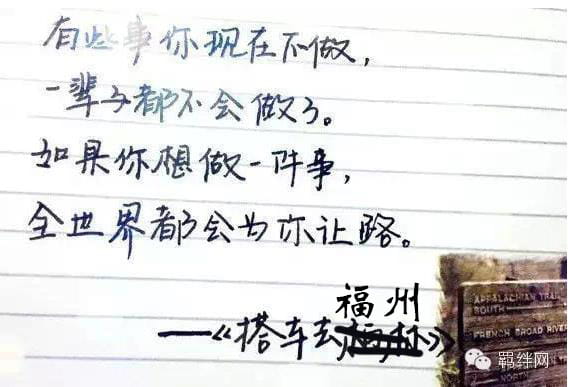 有些事你现在不做，
一辈子都不会做了。
如果你想做一件事，
全世界都会为你让路。
福州
——《搭车去柏林》
APPALACHIAN TRAIL
SOUTH
FRENCH BROAD RIVER
NORTH
羁绊网